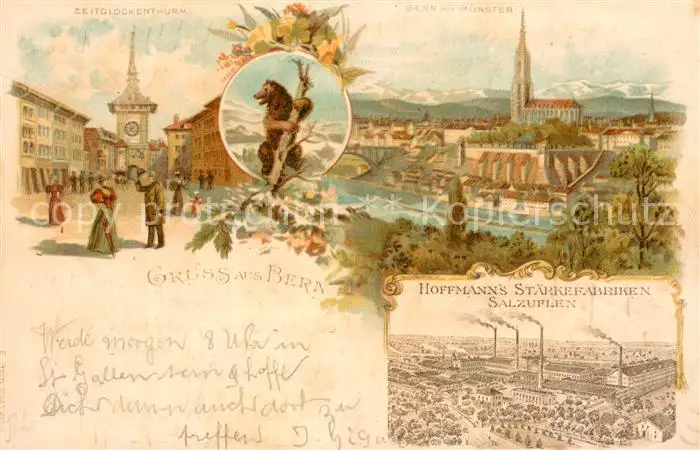 ZEITGLOCKENTHURM
BERN MIT MÜNSTER
GRUSS AUS BERN
HOFFMANN'S STÄRKEFABRIKEN
SALZUFLEN
Werde morgen 8 Uhr in
St Gallen sein & hoffe
Dich dann auch dort zu
treffen J.
copy protection © Kopierschutz